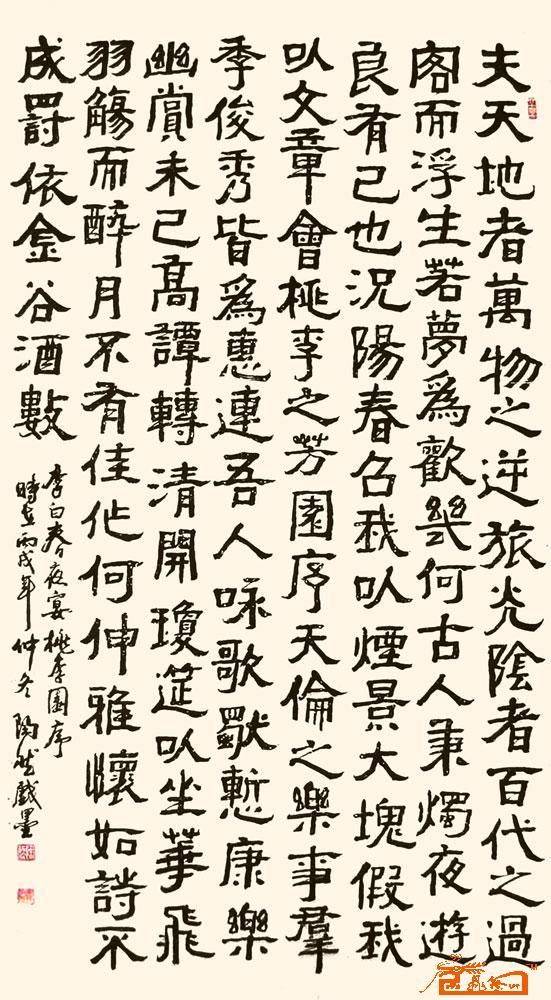 夫天地者萬物之逆旅光陰者百代之過
客而浮生若夢為歡幾何古人秉燭夜遊
良有已也況陽春召我以煙景大塊假我
以文章會桃李之芳園序天倫之樂事羣
季俊秀皆為惠連吾人咏歌獨慙康樂
幽賞未已高譚轉清開瓊筵以坐華飛
羽觴而醉月不有佳作何伸雅懷如詩不
成罰依金谷酒數
李白春夜宴桃李園序
時在丙戌年仲冬陶然戲墨